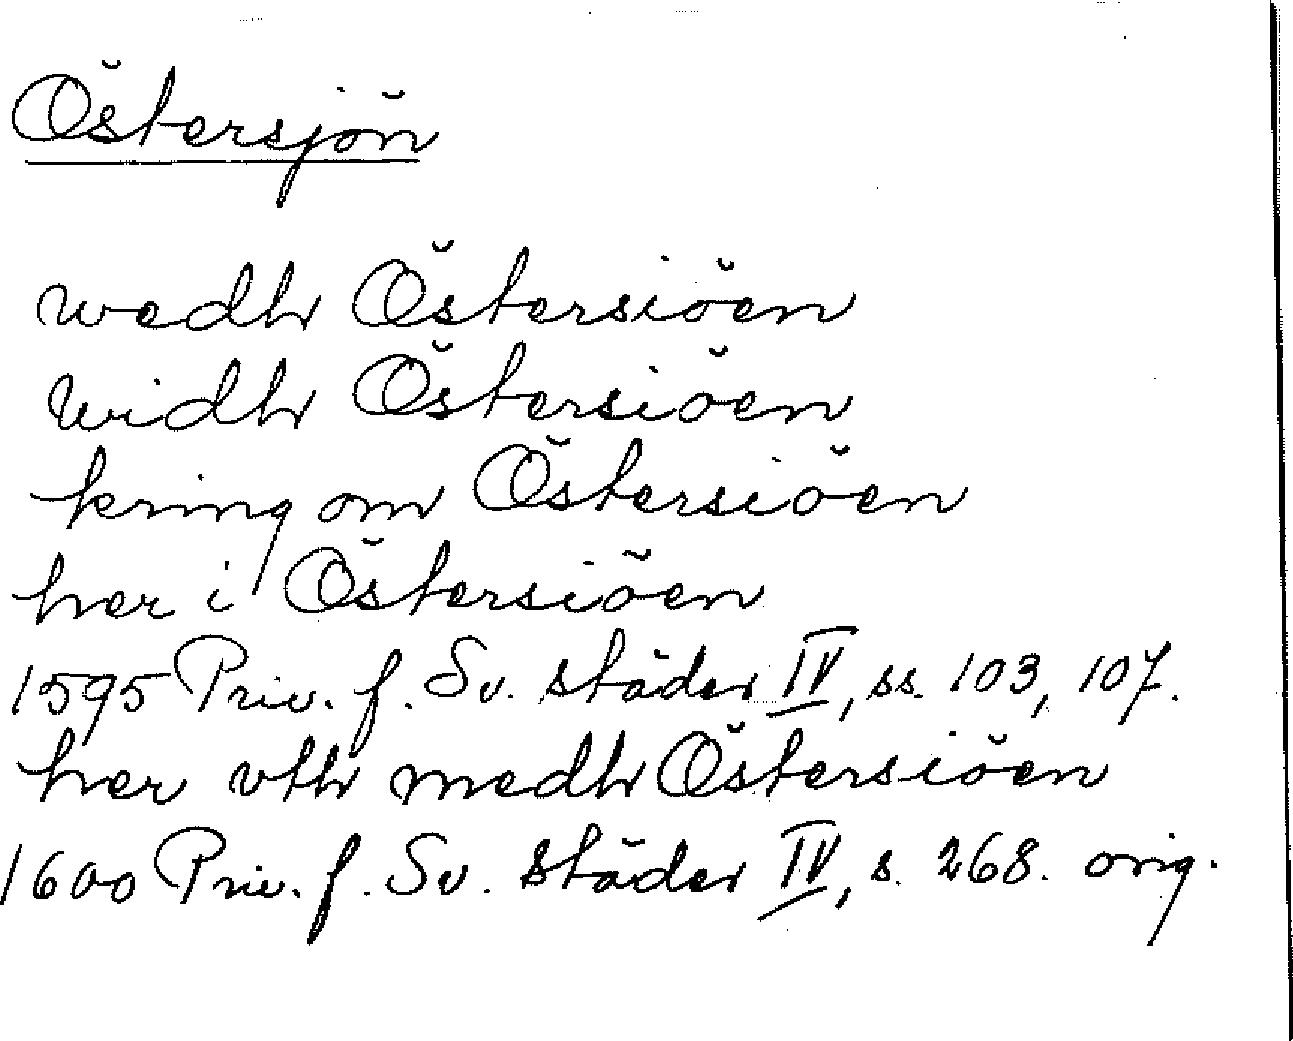 Östersjön
wedh Östersiöen
widh Östersiöen
kring om Östersiöen
her i Östersiöen
1595 Priv. f. Sv. städer IV, ss. 103, 107.
her vth medh Östersiöen
1600 Priv. f. Sv. städer IV, s. 268. orig.